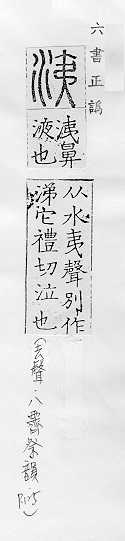 六書正譌
洟
洟鼻
液也
从水夷聲別作
涕它禮切泣也
(去聲・八霽祭韻 P.25)